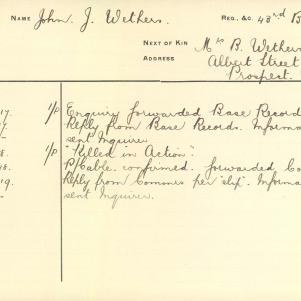 NAME John J. Wethers. REG., &C. 43rd B
NEXT OF KIN Mrs B. Wethers
ADDRESS Albert Street
Prospect.
17. 1/P Enquiry forwarded Base Record
Reply from Base Records. Informa
sent Inquirer
8. 1/P "Killed in Action".
P/Cable. confirmed. forwarded Co
19. Reply from Commrs per "slip". Informa
sent Inquirer.